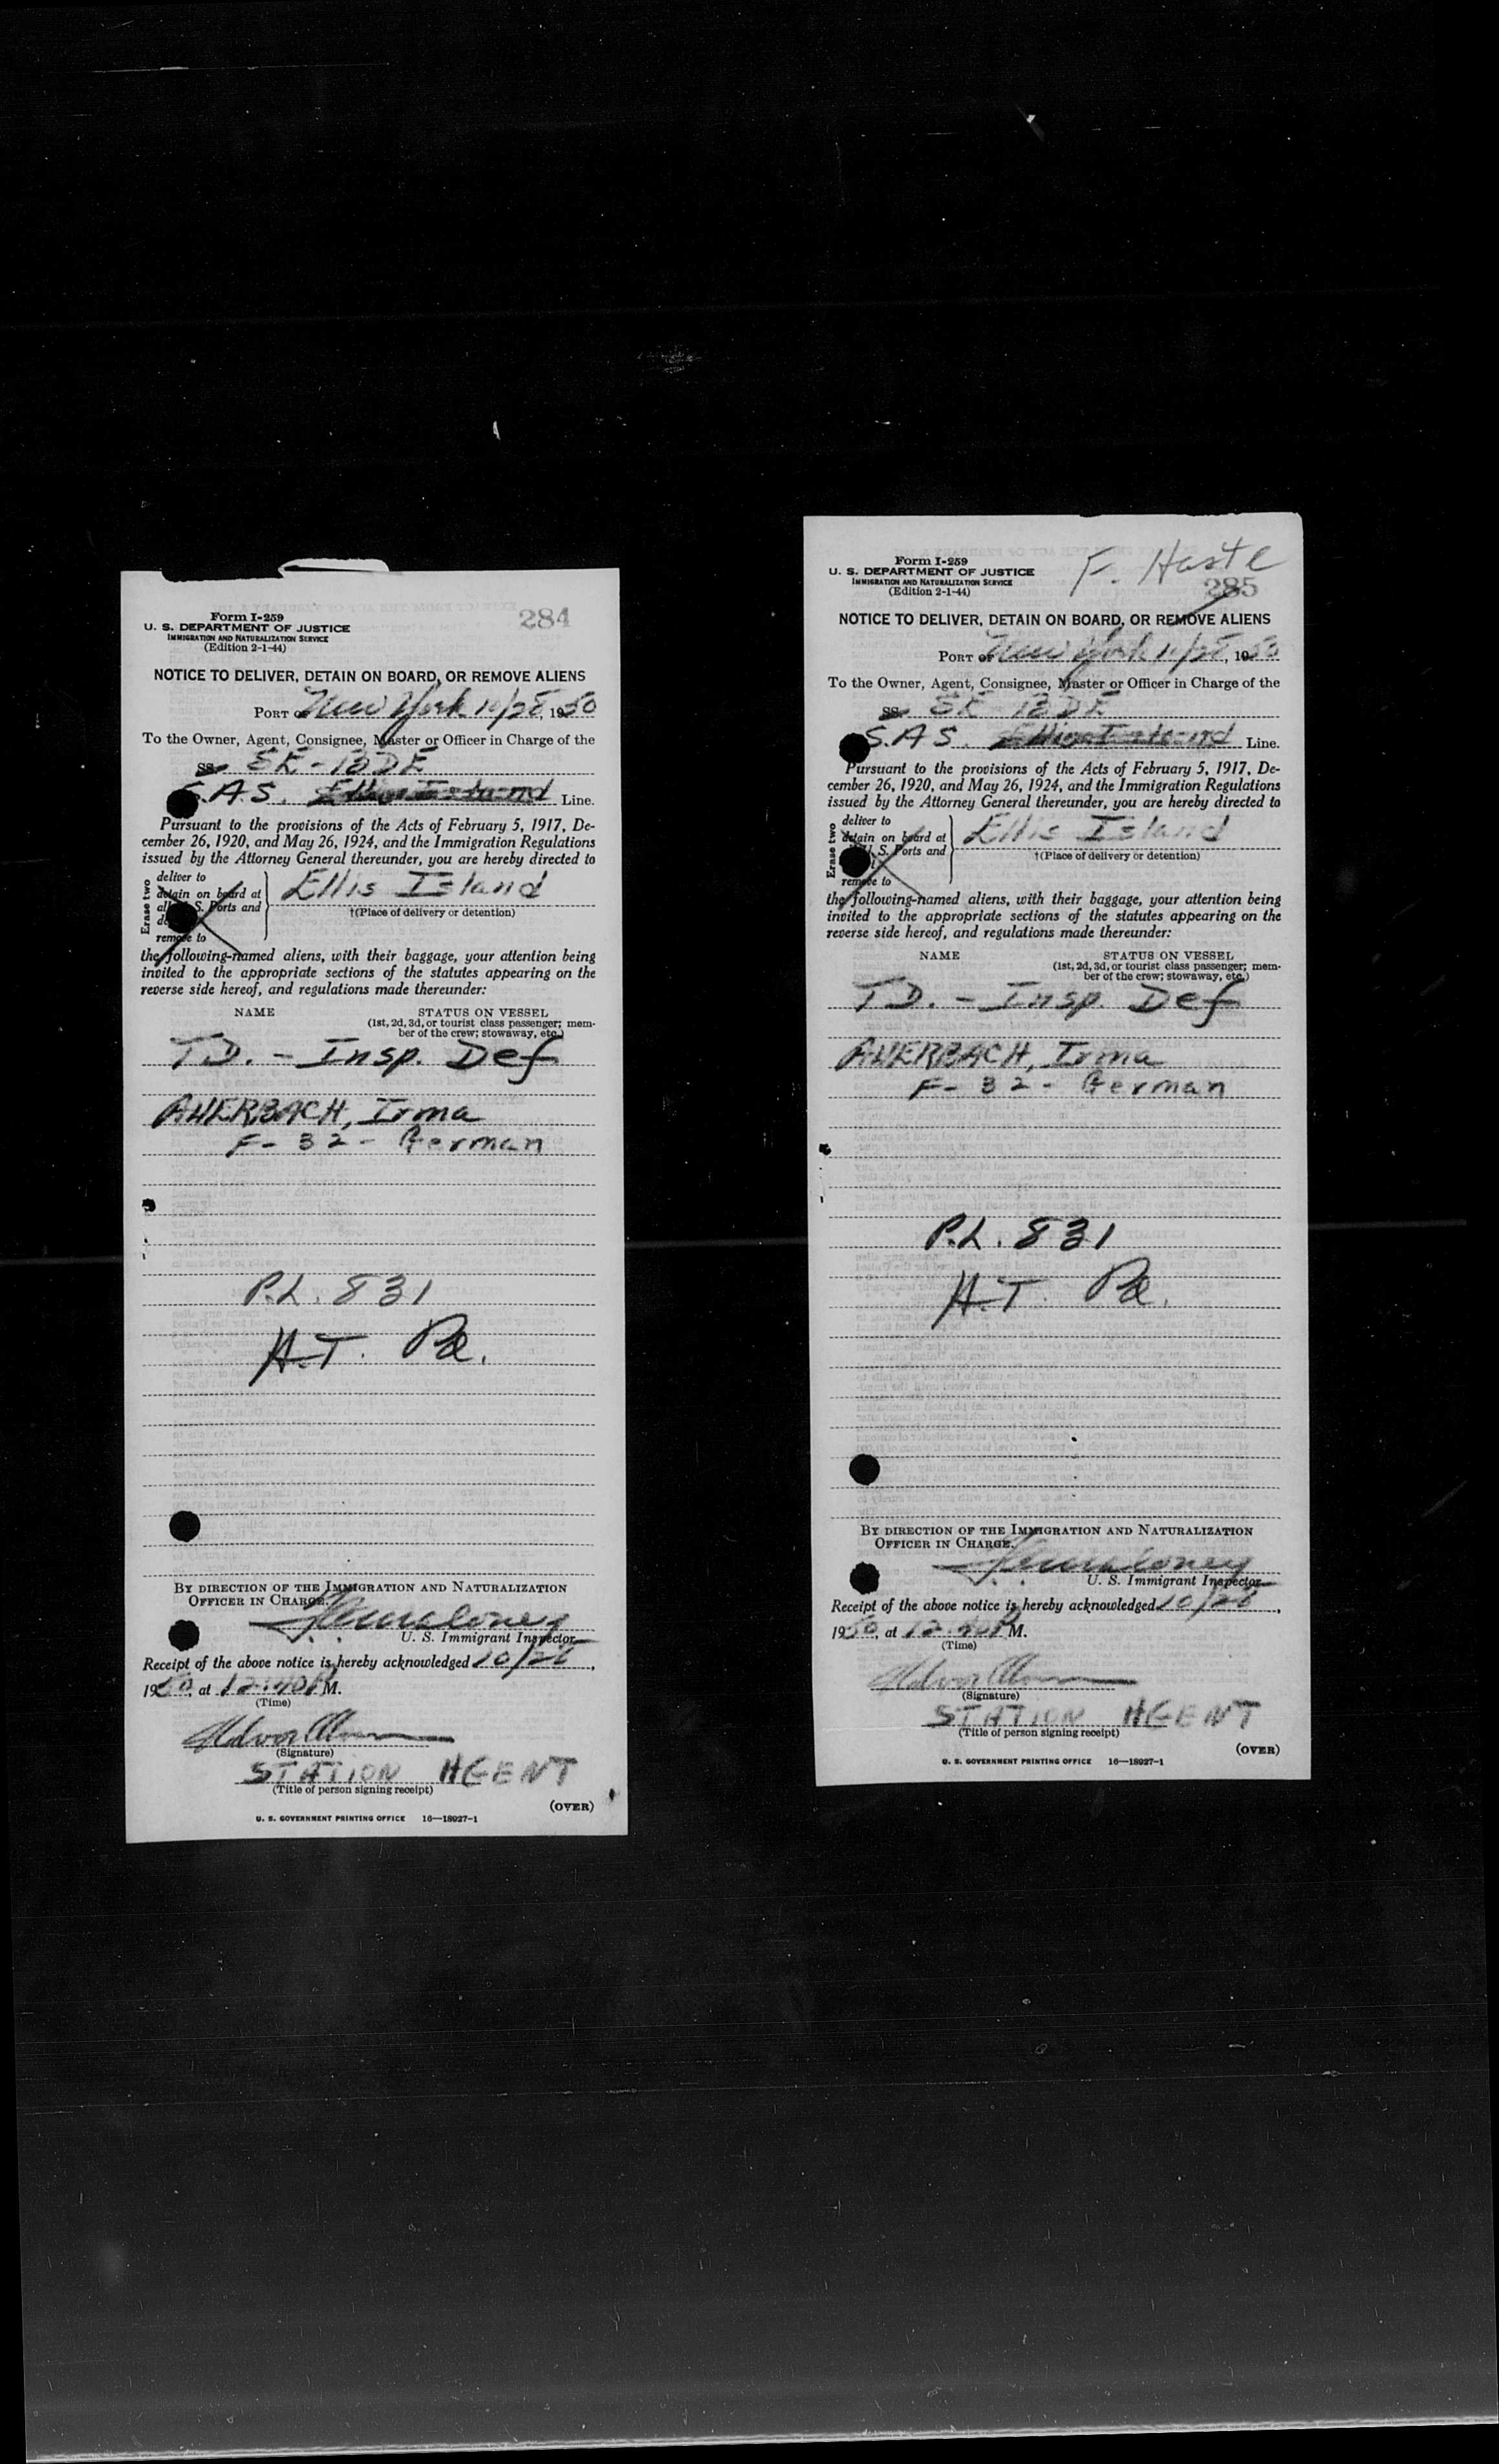 Form I-259
U. S. DEPARTMENT OF JUSTICE
IMMIGRATION AND NATURALIZATION SERVICE
(Edition 2-1-44)
284
NOTICE TO DELIVER, DETAIN ON BOARD, OR REMOVE ALIENS
PORT OF New York 10/28, 1950
To the Owner, Agent, Consignee, Master or Officer in Charge of the
SS. SE-BDE
S.A.S. Ellis Island Line.
Pursuant to the provisions of the Acts of February 5, 1917, De-
cember 26, 1920, and May 26, 1924, and the Immigration Regulations
issued by the Attorney General thereunder, you are hereby directed to
Erase two
deliver to
detain on board at
all U. S. Ports and
remove to
Ellis Island
†(Place of delivery or detention)
the following-named aliens, with their baggage, your attention being
invited to the appropriate sections of the statutes appearing on the
reverse side hereof, and regulations made thereunder:
NAME STATUS ON VESSEL
(1st, 2d, 3d, or tourist class passenger; mem-
ber of the crew; stowaway, etc.)
T.D. - Insp. Def
AUERBACH, Irma
F - 32 - German
P.L. 831
H.T.
BY DIRECTION OF THE IMMIGRATION AND NATURALIZATION
OFFICER IN CHARGE.
U. S. Immigrant Inspector
Receipt of the above notice is hereby acknowledged 10/28,
1950, at 12:40 P.M.
(Time)
(Signature)
STATION AGENT
(Title of person signing receipt)
(OVER)
U. S. GOVERNMENT PRINTING OFFICE 16—18927-1
Form I-259
U. S. DEPARTMENT OF JUSTICE
IMMIGRATION AND NATURALIZATION SERVICE
(Edition 2-1-44)
F. Haste
285
NOTICE TO DELIVER, DETAIN ON BOARD, OR REMOVE ALIENS
PORT OF New York 10/28, 1950
To the Owner, Agent, Consignee, Master or Officer in Charge of the
SS. SE BDE
S.A.S. Ellis Island Line.
Pursuant to the provisions of the Acts of February 5, 1917, De-
cember 26, 1920, and May 26, 1924, and the Immigration Regulations
issued by the Attorney General thereunder, you are hereby directed to
Erase two
deliver to
detain on board at
U. S. Ports and
remove to
Ellis Island
†(Place of delivery or detention)
the following-named aliens, with their baggage, your attention being
invited to the appropriate sections of the statutes appearing on the
reverse side hereof, and regulations made thereunder:
NAME STATUS ON VESSEL
(1st, 2d, 3d, or tourist class passenger; mem-
ber of the crew; stowaway, etc.)
T.D. - Insp. Def
AUERBACH, Irma
F - 32 - German
P.L. 831
H.T.
BY DIRECTION OF THE IMMIGRATION AND NATURALIZATION
OFFICER IN CHARGE.
U. S. Immigrant Inspector
Receipt of the above notice is hereby acknowledged 10/28,
1950, at 12:40 P.M.
(Time)
(Signature)
STATION AGENT
(Title of person signing receipt)
(OVER)
U. S. GOVERNMENT PRINTING OFFICE 16—18927-1